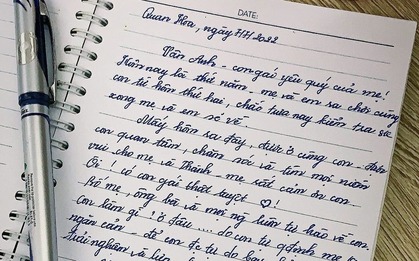 DATE:
Quan Hoa, ngày 7/7/2022
Vân Anh - con gái yêu quý của mẹ!
Hôm nay là thứ năm, mẹ và em sa chơi cùng
con từ hôm thứ hai, chắc trưa nay kiểm tra sk
xong mẹ và em sẽ về.
Mấy hôm ra đây, được ở cùng con, được
con quan tâm, chăm sóc và tìm mọi nước
vui cho mẹ và Thành, mẹ rất cảm ơn con.
Ôi! có con gái thật tuyệt ♡!
Bố mẹ, ông bà và mọi ng luôn tự hào về con.
con làm gì? ở đâu ... do con tự qđịnh mẹ
ngăn cản - để con đc tự do bay
trải nghiệm và